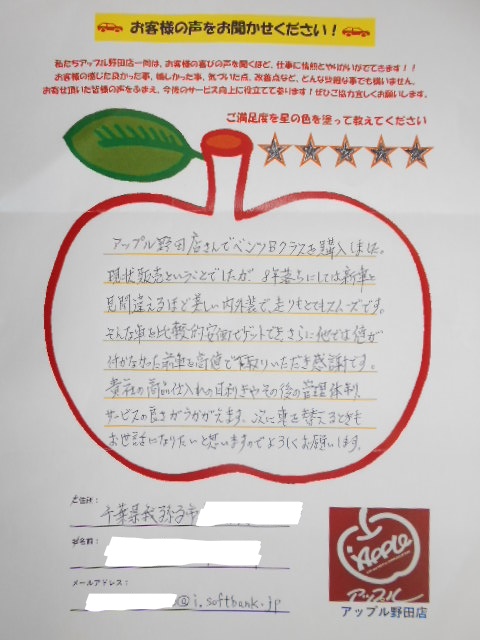 お客様の声をお聞かせください!
私たちアップル野田店一同は、お客様の喜びの声を聞くほど、仕事に情熱とやりがいがでてきます!!
お客様の感じた良かった事、嬉しかった事、気づいた点、改善点など、どんな些細な事でも構いません。
お寄せ頂いた皆様の声をふまえ、今後のサービス向上に役立てて参ります!ぜひご協力宜しくお願いします。
ご満足度を星の色を塗って教えてください
アップル野田店さんでベンツBクラスを購入しました。
現状販売ということでしたが、8年落ちにしては新車と
見間違えるほど美しい内外装で、走りもとてもスムーズです。
そんな車を比較的安価でゲットでき、さらに他では値が
付かなかった前車を高値で下取りいただき感謝です。
貴社の商品仕入れの目利きやその後の管理体制、
サービスの良さがうかがえます。次に車を替えるときも
お世話になりたいと思いますのでよろしくお願いします。
ご住所:
千葉県我孫子市
お名前:
メールアドレス:
@i.softbank.jp
Apple
アップル
アップル野田店